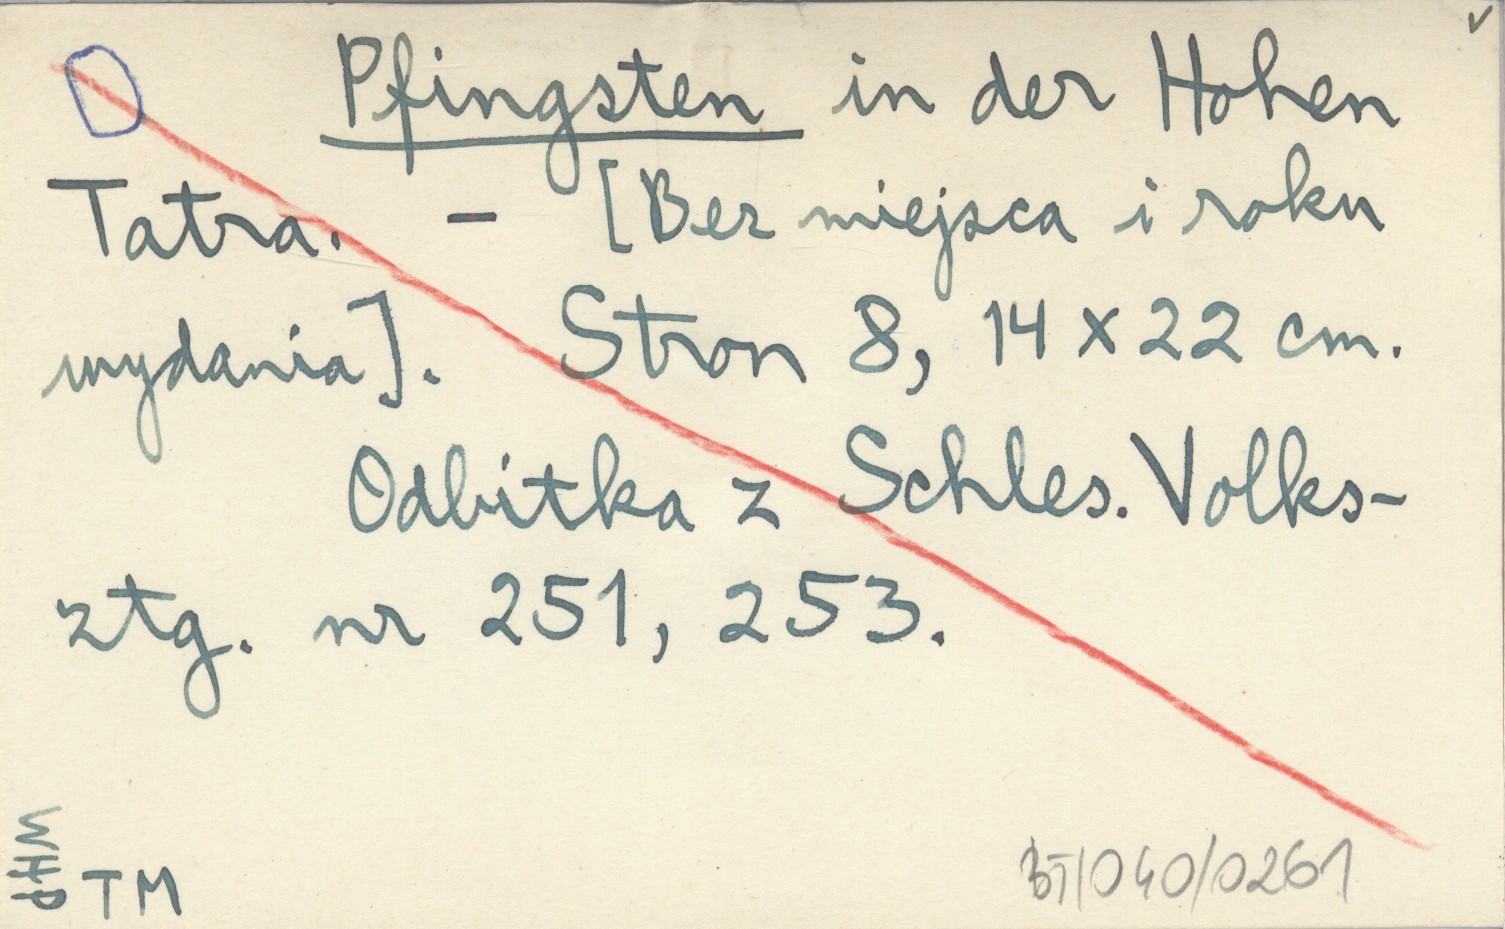 Pfingsten in der Hohen
Tatra. - [Bez miejsca i roku
wydania]. Stron 8, 14 x 22 cm.
Odbitka z Schles. Volks-
ztg. nr 251, 253.
WHP
TM
BT/040/0261